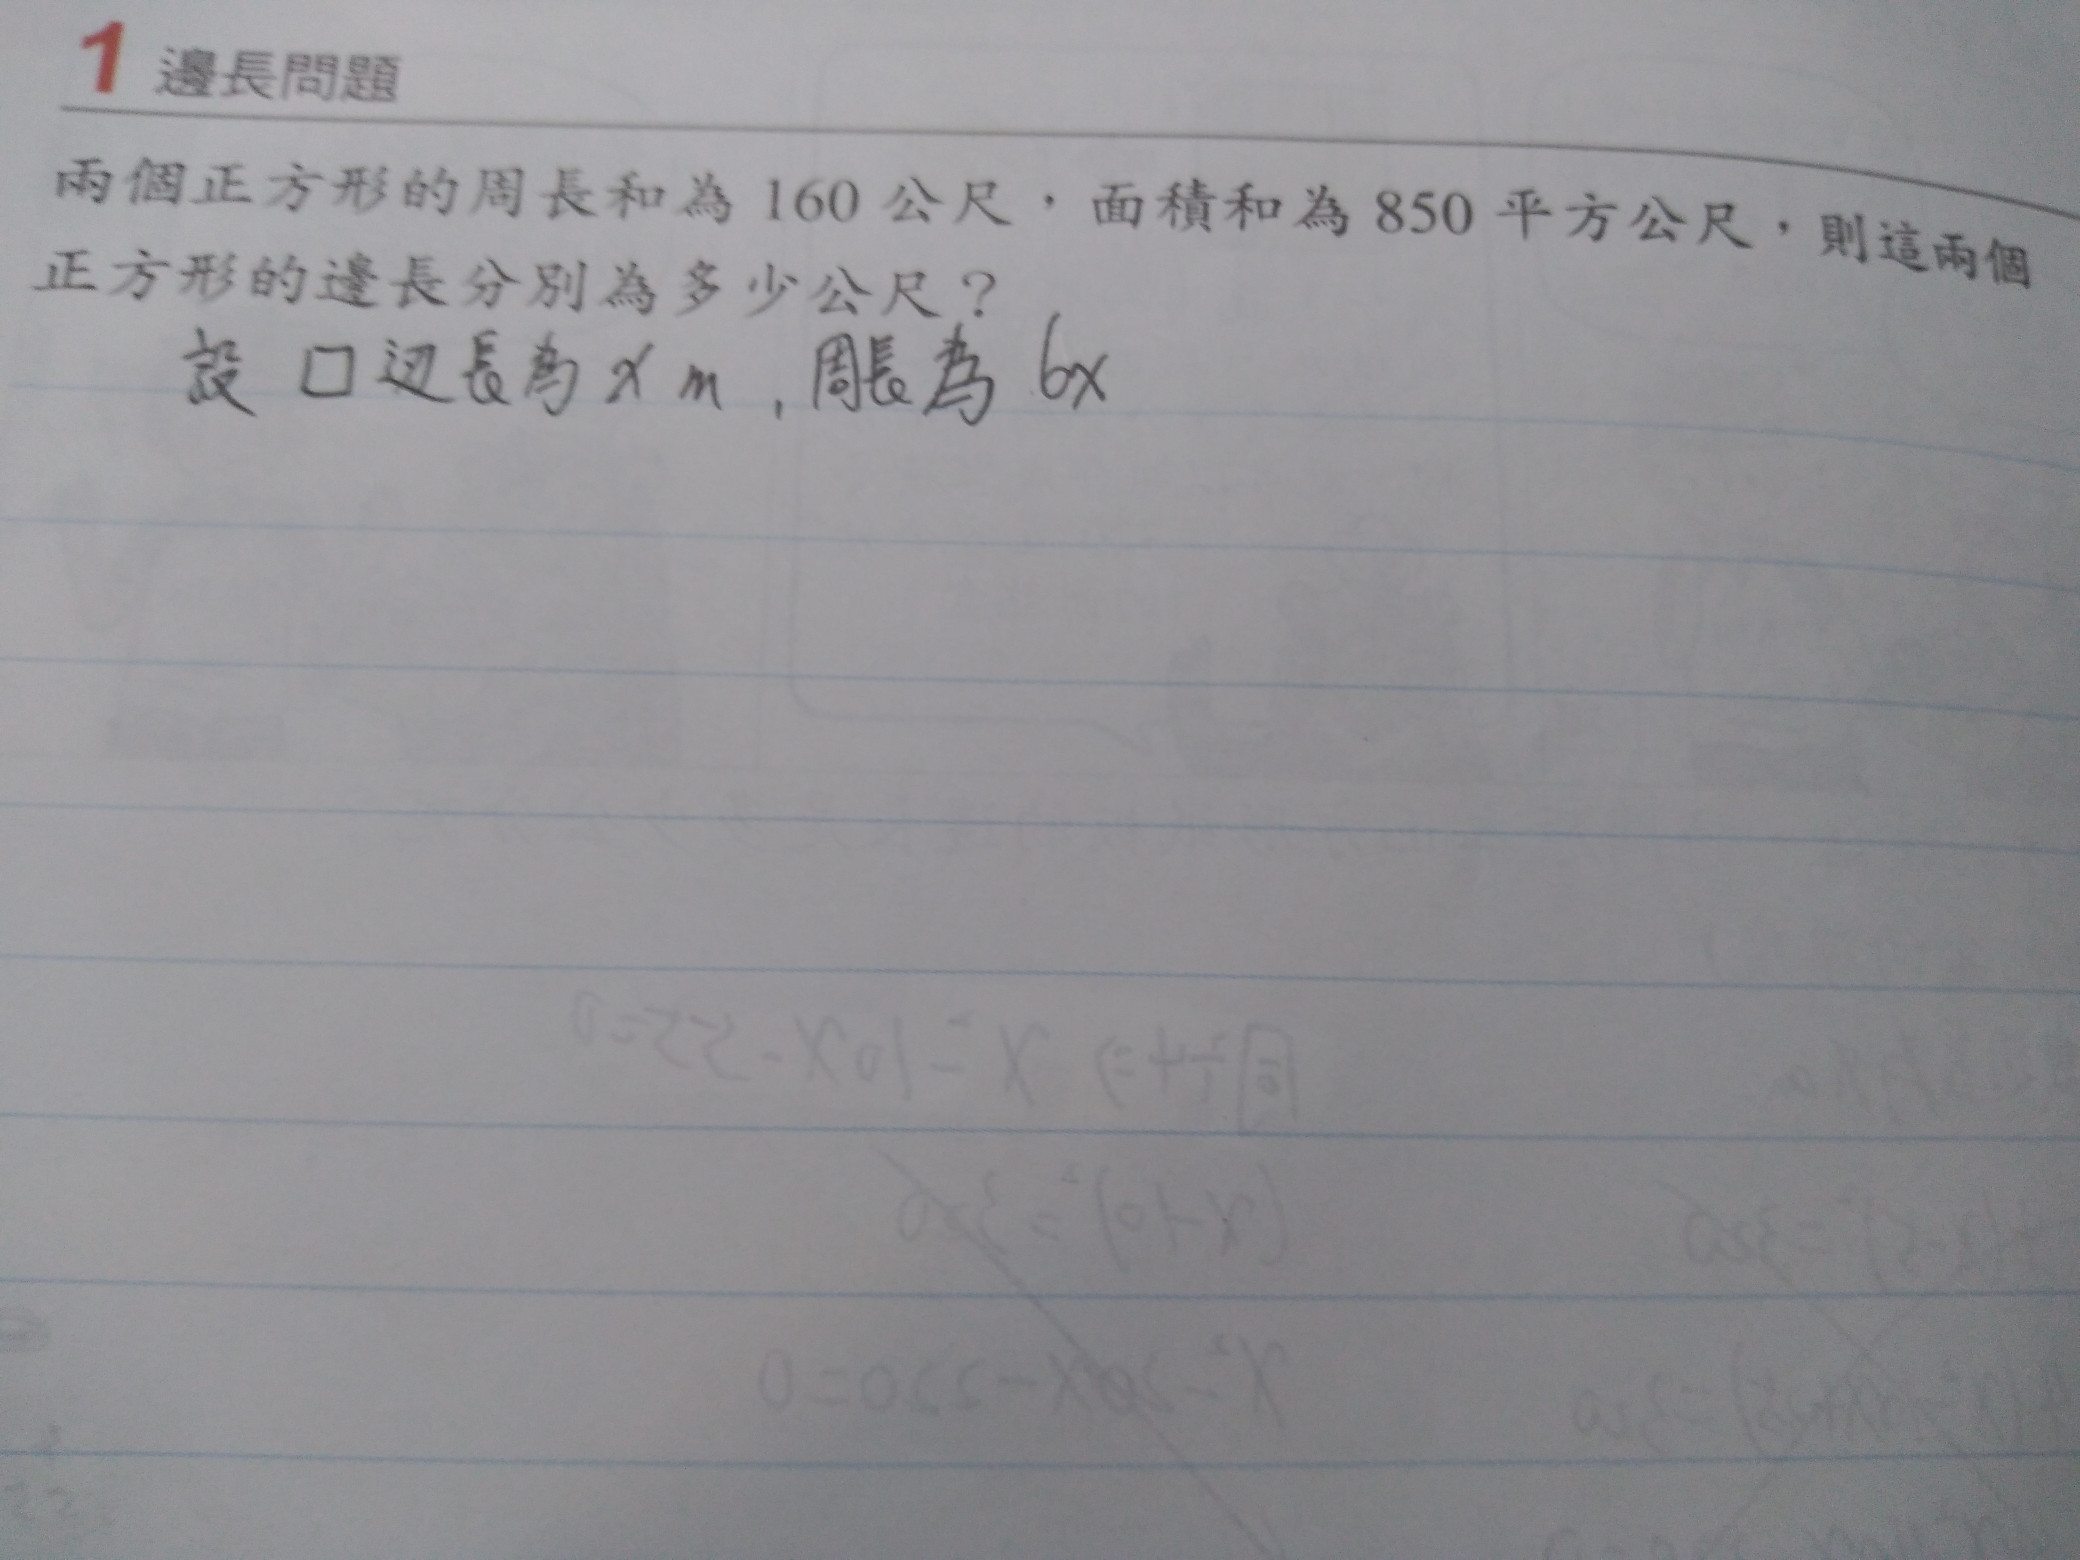 1 邊長問題
兩個正方形的周長和為 160 公尺，面積和為 850 平方公尺，則這兩個
正方形的邊長分別為多少公尺？
設 □ 边長為 x m , 周長為 6x
同÷4⇒ x²-10x-55=0
(x-10)²=320
x²-20x-220=0